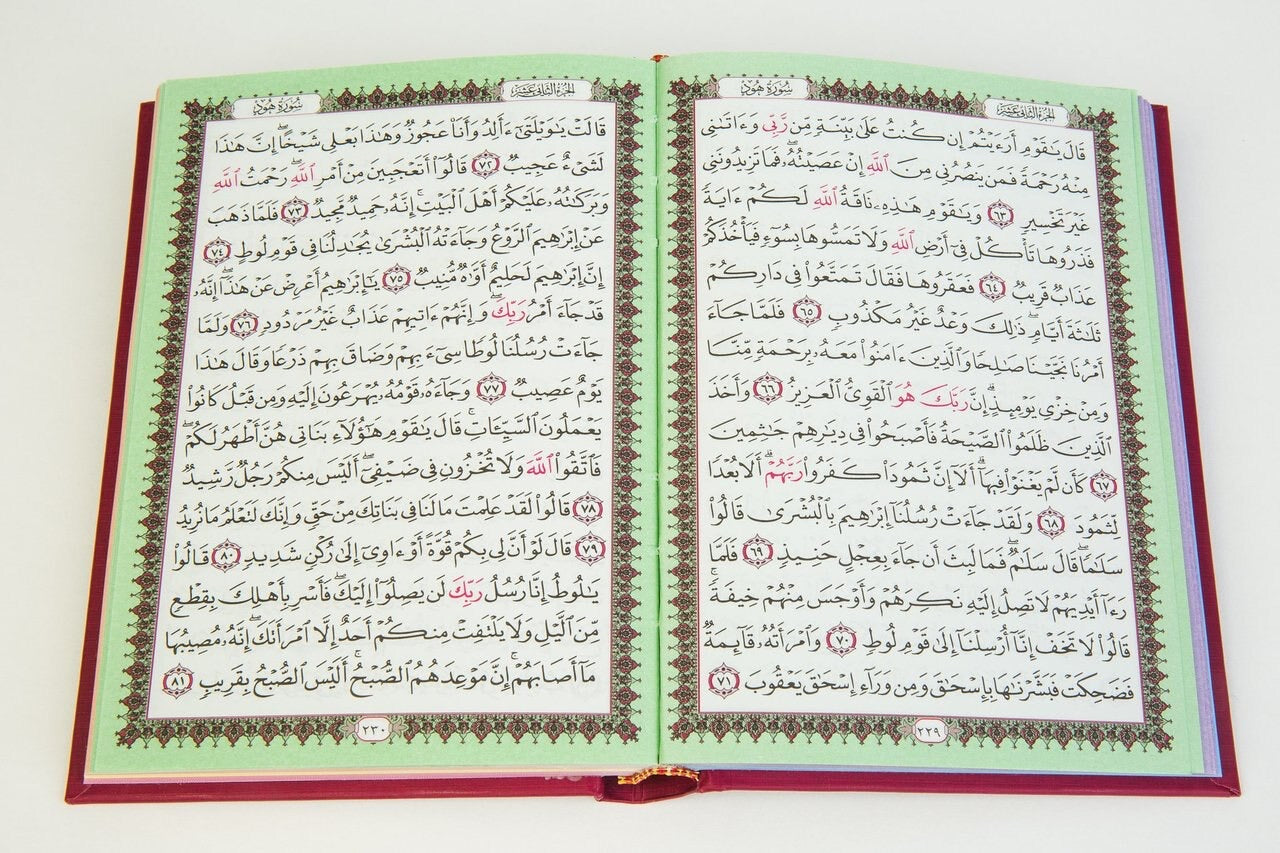 سُورَةُ هُودٍ
الجُزْءُ الثَّانِي عَشَرَ
قَالَ يَـٰقَوْمِ أَرَءَيْتُمْ إِن كُنتُ عَلَىٰ بَيِّنَةٍ مِّن رَّبِّي وَءَاتَىٰنِي
مِنْهُ رَحْمَةً فَمَن يَنصُرُنِي مِنَ ٱللَّهِ إِنْ عَصَيْتُهُۥۖ فَمَا تَزِيدُونَنِي
غَيْرَ تَخْسِيرٍ ٦٣ وَيَـٰقَوْمِ هَـٰذِهِۦ نَاقَةُ ٱللَّهِ لَكُمْ ءَايَةً
فَذَرُوهَا تَأْكُلْ فِيٓ أَرْضِ ٱللَّهِ وَلَا تَمَسُّوهَا بِسُوٓءٍ فَيَأْخُذَكُمْ
عَذَابٌ قَرِيبٌ ٦٤ فَعَقَرُوهَا فَقَالَ تَمَتَّعُوا۟ فِي دَارِكُمْ
ثَلَـٰثَةَ أَيَّامٍۖ ذَٰلِكَ وَعْدٌ غَيْرُ مَكْذُوبٍ ٦٥ فَلَمَّا جَآءَ
أَمْرُنَا نَجَّيْنَا صَـٰلِحًا وَٱلَّذِينَ ءَامَنُوا۟ مَعَهُۥ بِرَحْمَةٍ مِّنَّا
وَمِنْ خِزْيِ يَوْمِئِذٍۗ إِنَّ رَبَّكَ هُوَ ٱلْقَوِيُّ ٱلْعَزِيزُ ٦٦ وَأَخَذَ
ٱلَّذِينَ ظَلَمُوا۟ ٱلصَّيْحَةُ فَأَصْبَحُوا۟ فِي دِيَـٰرِهِمْ جَـٰثِمِينَ
٦٧ كَأَن لَّمْ يَغْنَوْا۟ فِيهَآۗ أَلَآ إِنَّ ثَمُودَا۟ كَفَرُوا۟ رَبَّهُمْۗ أَلَا بُعْدًا
لِّثَمُودَ ٦٨ وَلَقَدْ جَآءَتْ رُسُلُنَآ إِبْرَٰهِيمَ بِٱلْبُشْرَىٰ قَالُوا۟
سَلَـٰمًاۖ قَالَ سَلَـٰمٌۖ فَمَا لَبِثَ أَن جَآءَ بِعِجْلٍ حَنِيذٍ ٦٩ فَلَمَّا
رَءَآ أَيْدِيَهُمْ لَا تَصِلُ إِلَيْهِ نَكِرَهُمْ وَأَوْجَسَ مِنْهُمْ خِيفَةًۚ
قَالُوا۟ لَا تَخَفْ إِنَّآ أُرْسِلْنَآ إِلَىٰ قَوْمِ لُوطٍ ٧٠ وَٱمْرَأَتُهُۥ قَآئِمَةٌ
فَضَحِكَتْ فَبَشَّرْنَـٰهَا بِإِسْحَـٰقَ وَمِن وَرَآءِ إِسْحَـٰقَ يَعْقُوبَ ٧١
٢٢٩
الجُزْءُ الثَّانِي عَشَرَ
سُورَةُ هُودٍ
قَالَتْ يَـٰوَيْلَتَىٰٓ ءَأَلِدُ وَأَنَا۠ عَجُوزٌ وَهَـٰذَا بَعْلِي شَيْخًاۖ إِنَّ هَـٰذَا
لَشَىْءٌ عَجِيبٌ ٧٢ قَالُوٓا۟ أَتَعْجَبِينَ مِنْ أَمْرِ ٱللَّهِۖ رَحْمَتُ ٱللَّهِ
وَبَرَكَـٰتُهُۥ عَلَيْكُمْ أَهْلَ ٱلْبَيْتِۚ إِنَّهُۥ حَمِيدٌ مَّجِيدٌ ٧٣ فَلَمَّا ذَهَبَ
عَنْ إِبْرَٰهِيمَ ٱلرَّوْعُ وَجَآءَتْهُ ٱلْبُشْرَىٰ يُجَـٰدِلُنَا فِي قَوْمِ لُوطٍ ٧٤
إِنَّ إِبْرَٰهِيمَ لَحَلِيمٌ أَوَّٰهٌ مُّنِيبٌ ٧٥ يَـٰٓإِبْرَٰهِيمُ أَعْرِضْ عَنْ هَـٰذَآۖ إِنَّهُۥ
قَدْ جَآءَ أَمْرُ رَبِّكَۖ وَإِنَّهُمْ ءَاتِيهِمْ عَذَابٌ غَيْرُ مَرْدُودٍ ٧٦ وَلَمَّا
جَآءَتْ رُسُلُنَا لُوطًا سِيٓءَ بِهِمْ وَضَاقَ بِهِمْ ذَرْعًا وَقَالَ هَـٰذَا
يَوْمٌ عَصِيبٌ ٧٧ وَجَآءَهُۥ قَوْمُهُۥ يُهْرَعُونَ إِلَيْهِ وَمِن قَبْلُ كَانُوا۟
يَعْمَلُونَ ٱلسَّيِّـَٔاتِۚ قَالَ يَـٰقَوْمِ هَـٰٓؤُلَآءِ بَنَاتِي هُنَّ أَطْهَرُ لَكُمْۖ
فَٱتَّقُوا۟ ٱللَّهَ وَلَا تُخْزُونِ فِي ضَيْفِيٓۖ أَلَيْسَ مِنكُمْ رَجُلٌ رَّشِيدٌ
٧٨ قَالُوا۟ لَقَدْ عَلِمْتَ مَا لَنَا فِي بَنَاتِكَ مِنْ حَقٍّ وَإِنَّكَ لَتَعْلَمُ مَا نُرِيدُ
٧٩ قَالَ لَوْ أَنَّ لِي بِكُمْ قُوَّةً أَوْ ءَاوِيٓ إِلَىٰ رُكْنٍ شَدِيدٍ ٨٠ قَالُوا۟
يَـٰلُوطُ إِنَّا رُسُلُ رَبِّكَ لَن يَصِلُوٓا۟ إِلَيْكَۖ فَأَسْرِ بِأَهْلِكَ بِقِطْعٍ
مِّنَ ٱلَّيْلِ وَلَا يَلْتَفِتْ مِنكُمْ أَحَدٌ إِلَّا ٱمْرَأَتَكَۖ إِنَّهُۥ مُصِيبُهَا
مَآ أَصَابَهُمْۚ إِنَّ مَوْعِدَهُمُ ٱلصُّبْحُۚ أَلَيْسَ ٱلصُّبْحُ بِقَرِيبٍ ٨١
٢٣٠